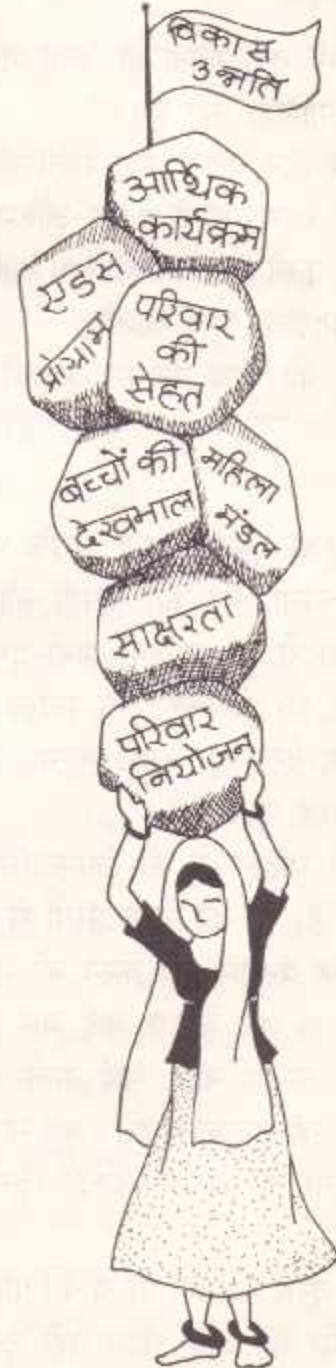 विकास
उन्नति
आर्थिक
कार्यक्रम
एडस
प्रोग्राम
परिवार
की
सेहत
बच्चों की
देखभाल
महिला
मंडल
साक्षरता
परिवार
नियोजन